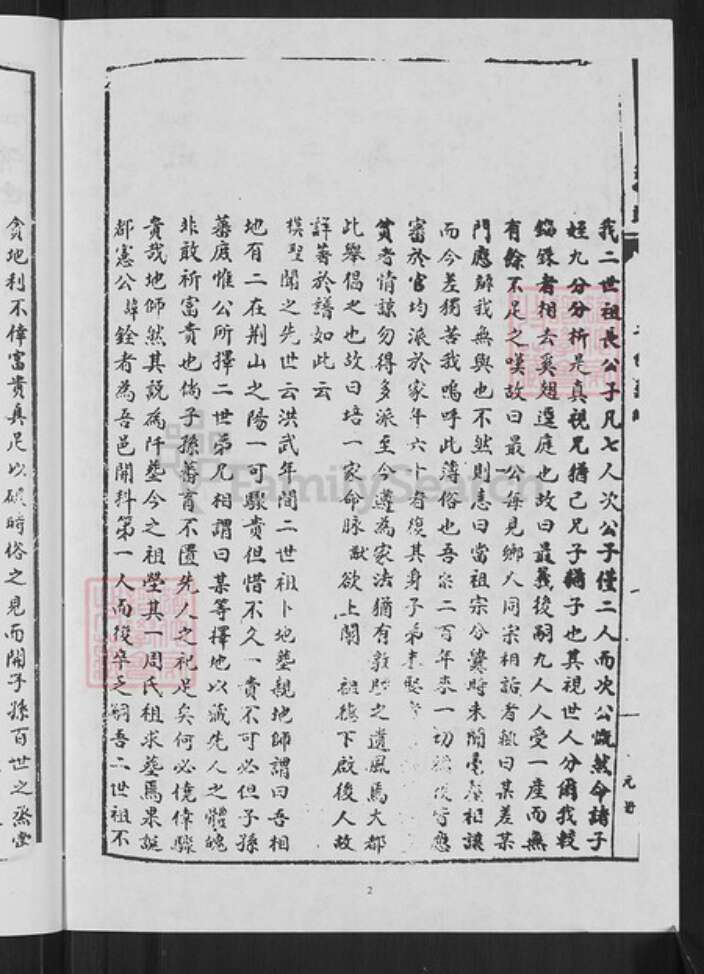 我二世祖長公子凡七人次公子僅二人而次公慨然命諸子
姪九分分析是真視兄猶己兄子猶子也其視世人分爾我較
錙銖者相去奚翅逕庭也故曰最義後嗣九人人受一產而無
有餘不足之嘆故曰最公每見鄉人同宗相詣者輒曰某差某
門應辦我無與也不然則恚曰當祖宗分爨時未聞毫釐相讓
而今差獨苦我嗚呼此薄俗也吾宗二百年來一切 役皆應
審於官均派於家年六十者復其身子弟
貧者情諒勿得多派至今遵為家法猶有敦睦之遺風焉大都
此舉倡之也故曰培一家命脉猷欲上闡 祖德下啟後人故
詳著於譜如此云
模聖聞之先世云洪武年間二世祖卜地塟親地師謂曰吾相
地有二在荆山之陽一可驟貴但惜不久一貴不可必但子孫
蕃庶惟公所擇二世弟兄相謂曰某等擇地以藏先人之體魄
非敢祈富貴也倘子孫蕃育不匱先人之祀足矣何必僥倖驟
貴哉地師然其說為阡塟今之祖塋其一周氏祖求塟焉果誕
都憲公諱銓者為吾邑開科第一人而後卒乏嗣吾二世祖不
元册
2
貪地利不倖富貴真足以破時俗之見而開子孫百世之烝嘗
FamilySearch